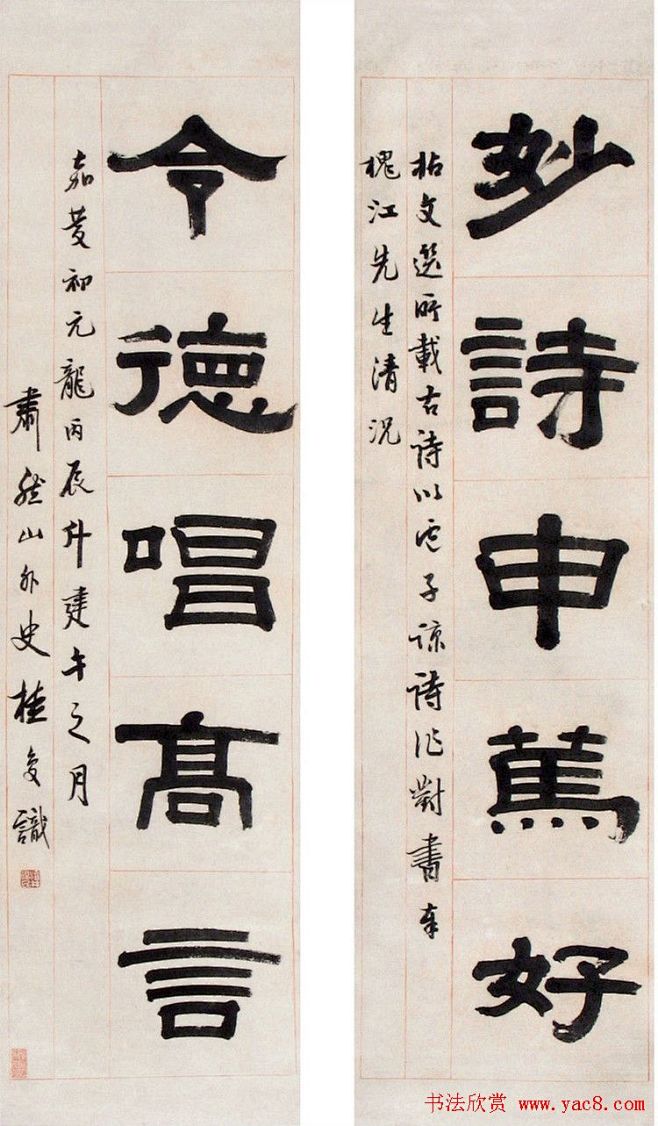 妙詩申篤好
拈文選所載古詩以盧子諒詩作對書奉
槐江先生清況
令德唱高言
嘉慶初元龍丙辰斗建午之月
肅然山外史桂馥識
书法欣赏 www.yac8.com